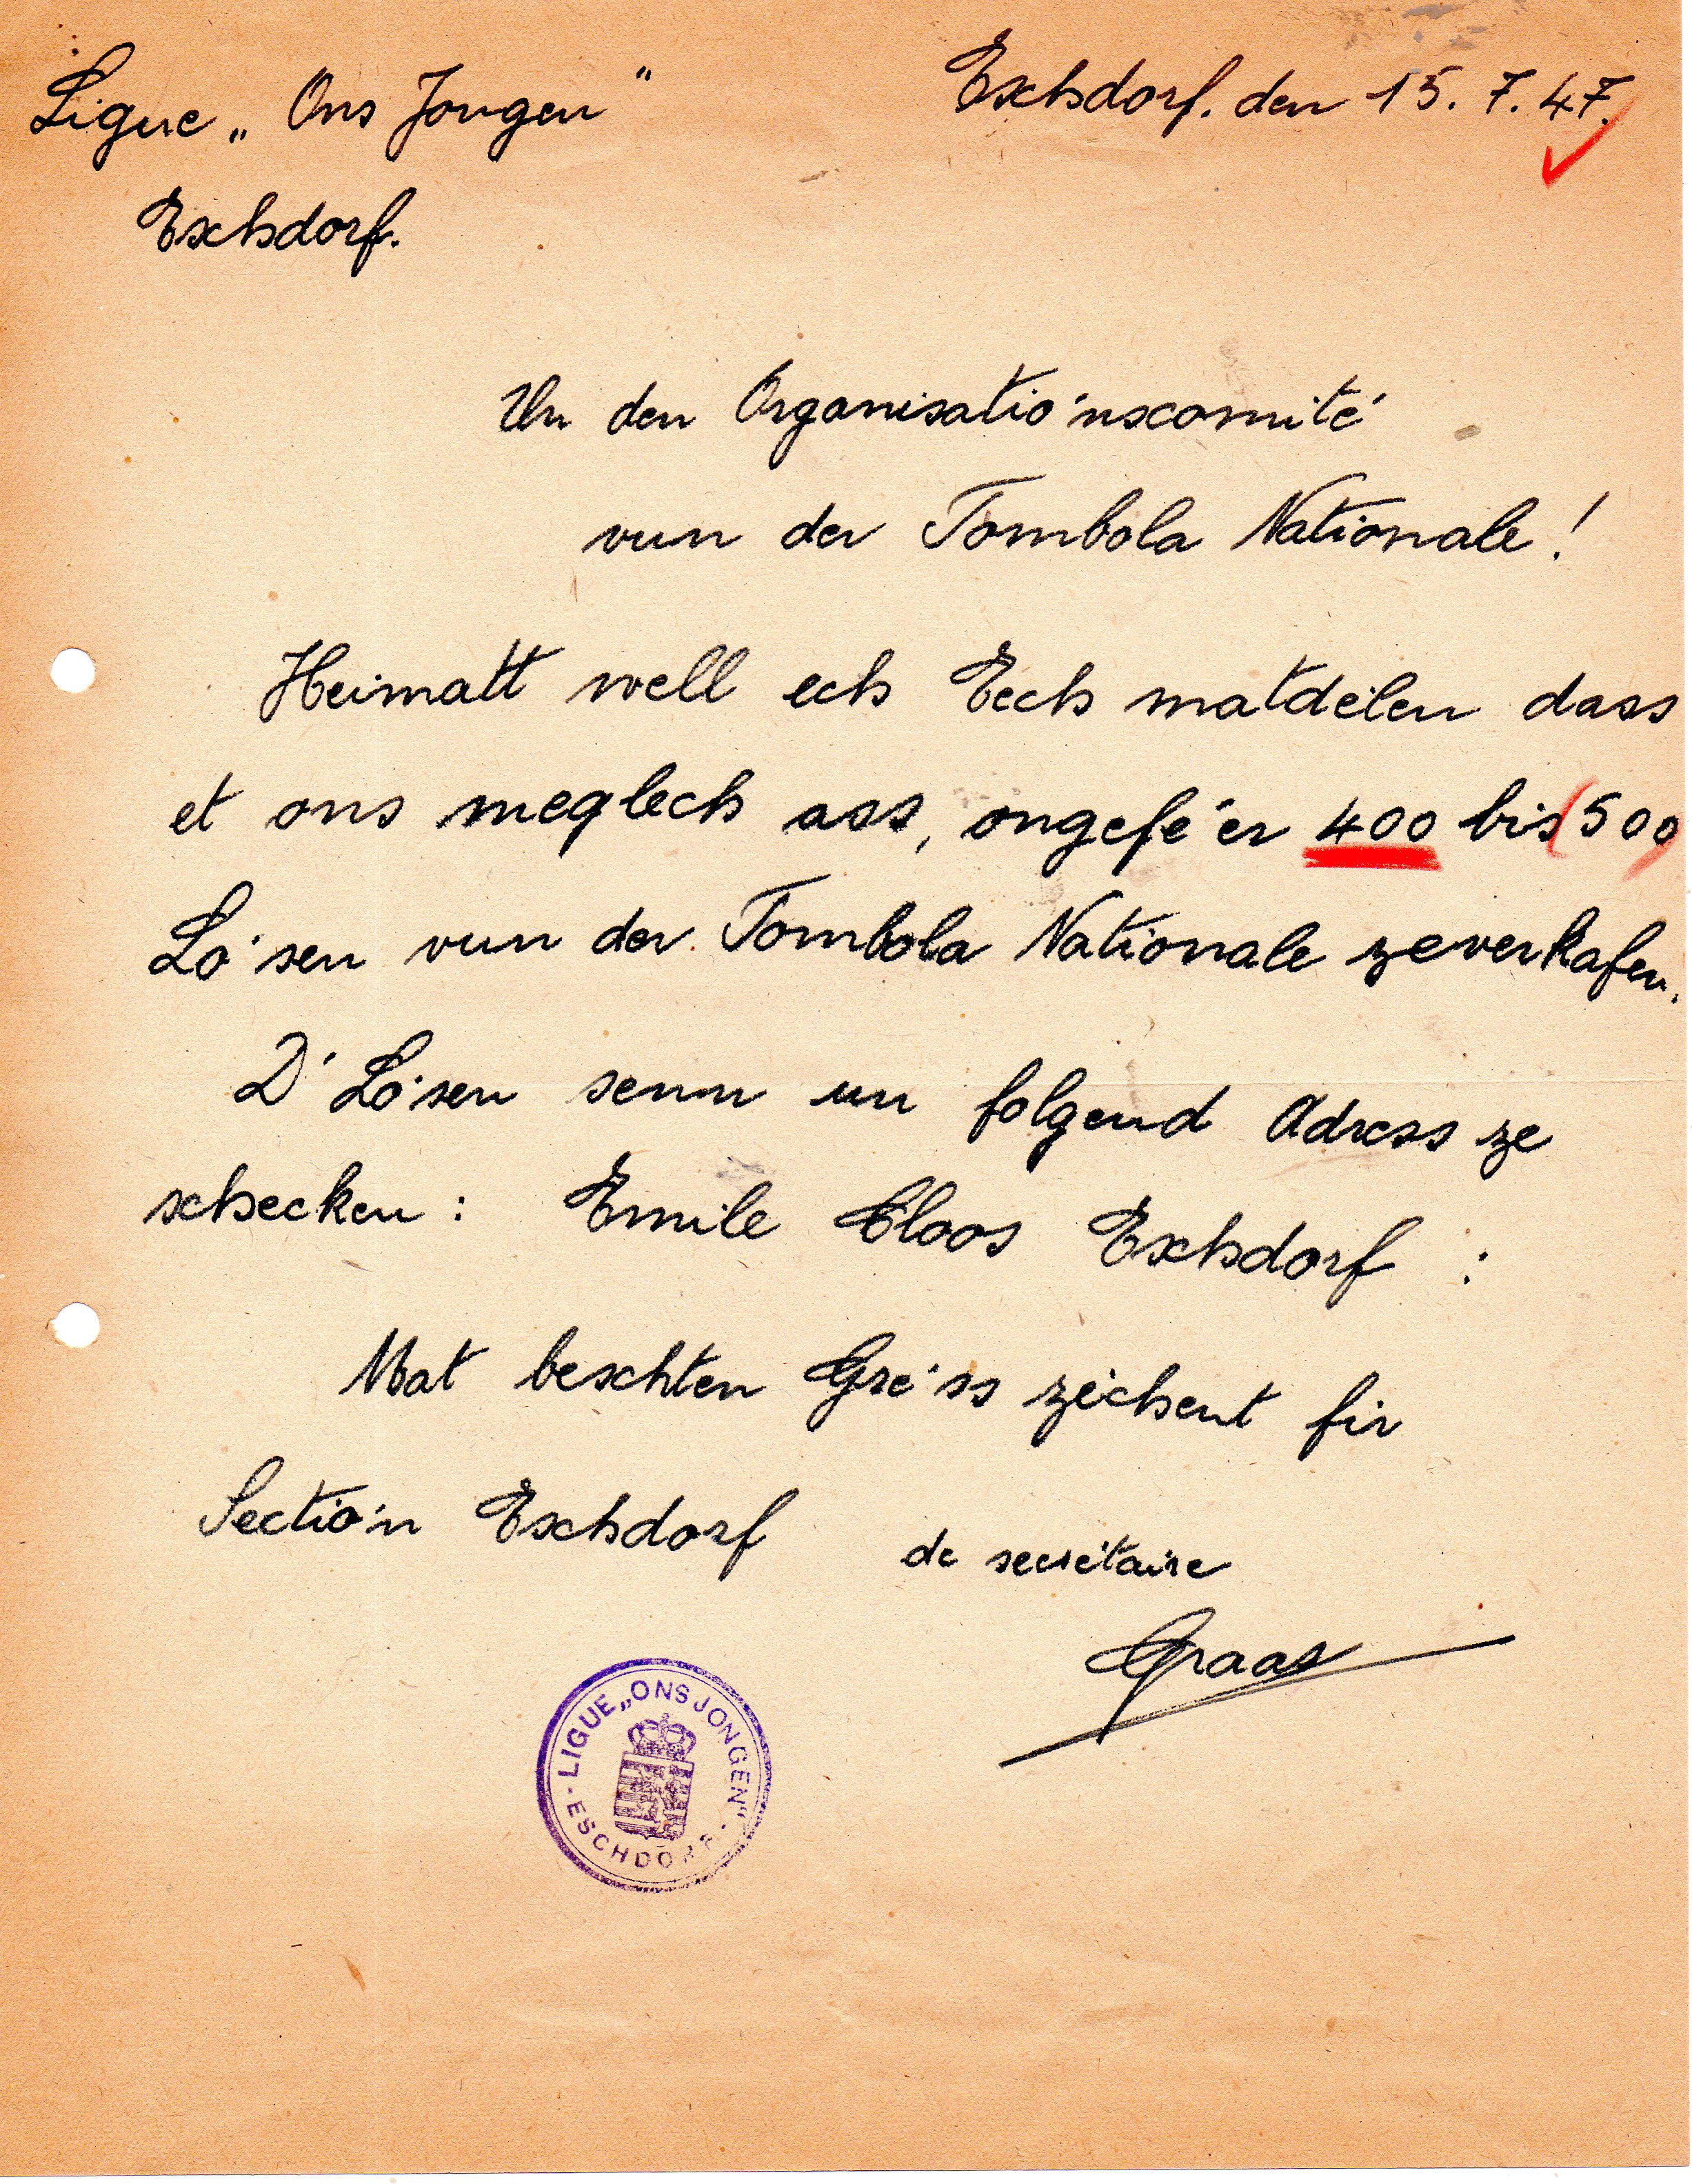 Ligue „Ons Jongen"
Eschdorf. den 15. 7. 47.
Eschdorf.
Un den Organisatio'nscomité
vun der Tombola Nationale!
Heimatt well ech Eech matdélen dass
et ons meglech ass, ongefé'er 400 bis (500)
Lo'sen vun der Tombola Nationale ze verkafen.
D'Lo'sen senn un folgend Adress ze
schecken: Emile Cloos Eschdorf :
Mat beschten Gré'ss zéchent fir
Sectio'n Eschdorf
de secrétaire
Graas
LIGUE „ONS JONGEN"
- ESCHDORF -